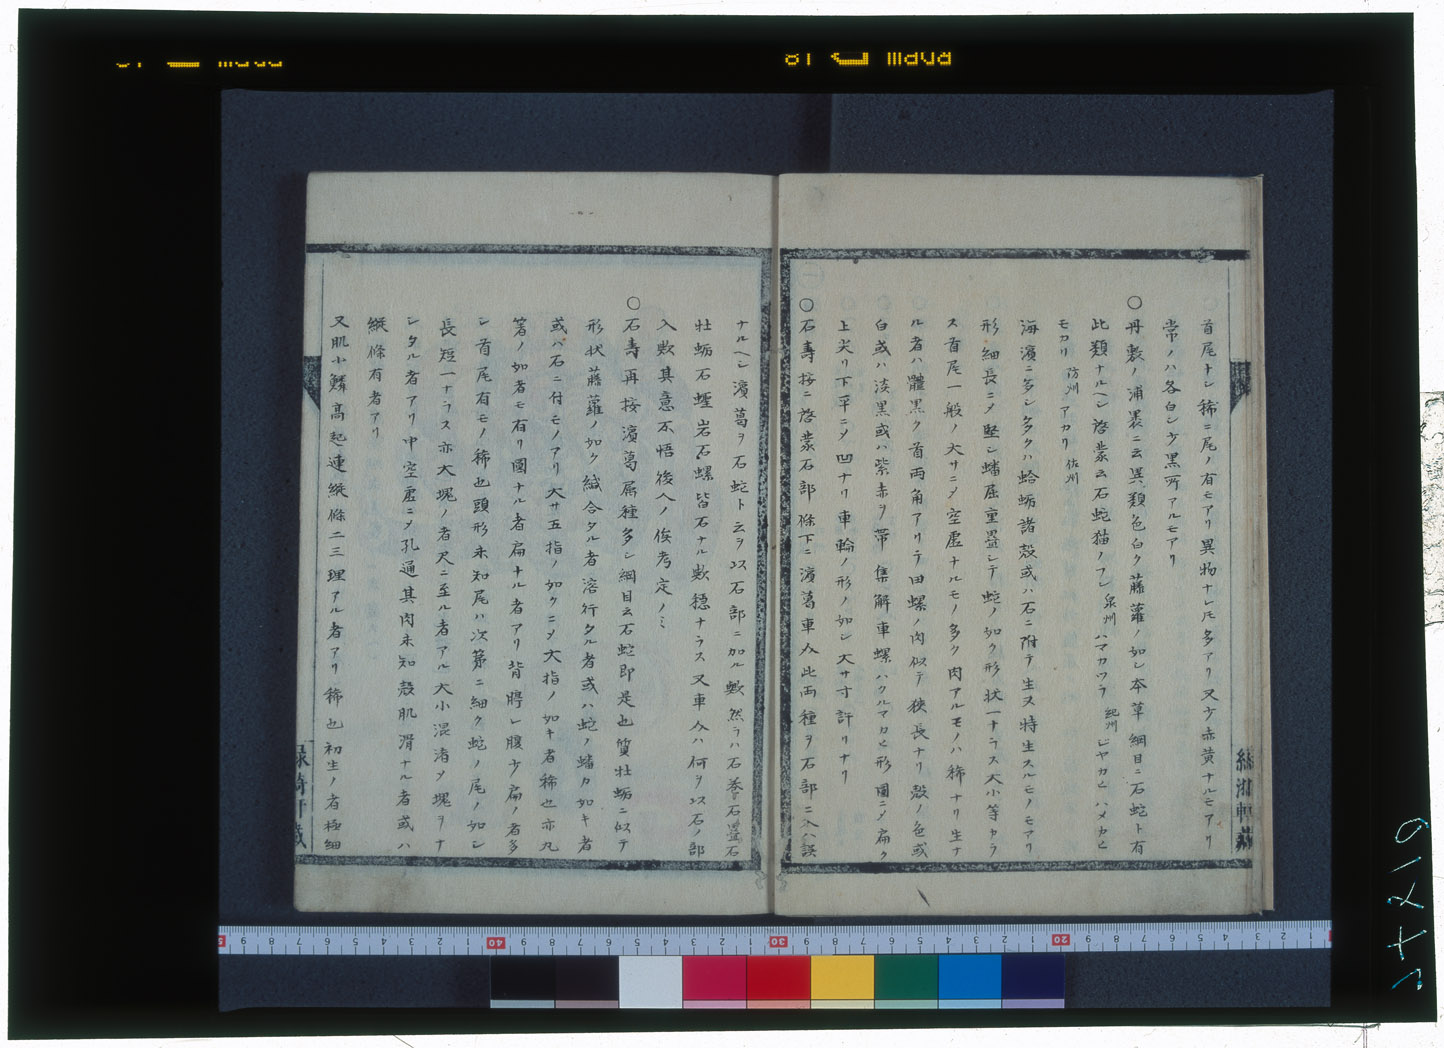 首尾トシ稀ニ尾ノ有モアリ異物ナレ𪜈多アリ又少赤黄ナルモアリ
常ノハ各白シ少黒所アルモアリ
○丹敷ノ浦裏ニ云異類色白ク藤蘿ノ如シ本草綱目ニ石蛇ト有
此類ナルヘシ啓蒙云石蛇猫ノフシ泉州ハマカツラ紀州ビヤカヒハメカヒ
モカリ防州アカリ佐州
海濱ニ多シ多クハ蛤蛎諸殻或ハ石ニ附テ生ス特生スルモノモアリ
形細長ニメ堅シ蟠屈重畳シテ蛇ノ如ク形状一ナラス大小等カラ
ス首尾一般ノ大サニメ空虚ナルモノ多ク肉アルモノハ稀ナリ生ナ
ル者ハ體黒ク首両角アリテ田螺ノ肉似テ狹長ナリ殻ノ色或
白或ハ淡黒或ハ紫赤ヲ帯集解車螺ハクルマカヒ形圓ニメ扁ク
上尖リ下平ニメ凹ナリ車輪ノ形ノ如シ大サ寸許リナリ
○石壽按ニ啓蒙石部條下ニ濱葛車人此両種ヲ石部ニ入ハ誤
ナルヘシ濱葛ヲ石蛇ト云ヲ以石部ニ加ル歟然ラハ石蚕石鼈石
牡蛎石蛭岩石螺皆石ナル歟穏ナラス又車人ハ何ヲ以石ノ部
入歟其意不悟後人ノ俟考定ノミ
○石壽再按濱葛屬種多シ綱目云石蛇即是也質牡蛎ニ似テ
形状藤蘿ノ如ク緘合タル者溶行タル者或ハ蛇ノ蟠カ如キ者
或ハ石ニ付モノアリ大サ五指ノ如クニメ大指ノ如キ者稀也亦丸
箸ノ如者モ有リ圓ナル者扁ナル者アリ背𦜝レ腹少扁ノ者多
シ首尾有モノ稀也頭形未知尾ハ次第ニ細ク蛇ノ尾ノ如シ
長短一ナラス亦大塊ノ者尺ニ至ル者アル大小混渚メ塊ヲナ
シタル者アリ中空虚ニメ孔通其肉未知殻肌滑ナル者或ハ
縦條有者アリ
又肌小鱗高起連縦條二三理アル者アリ稀也初生ノ者極細